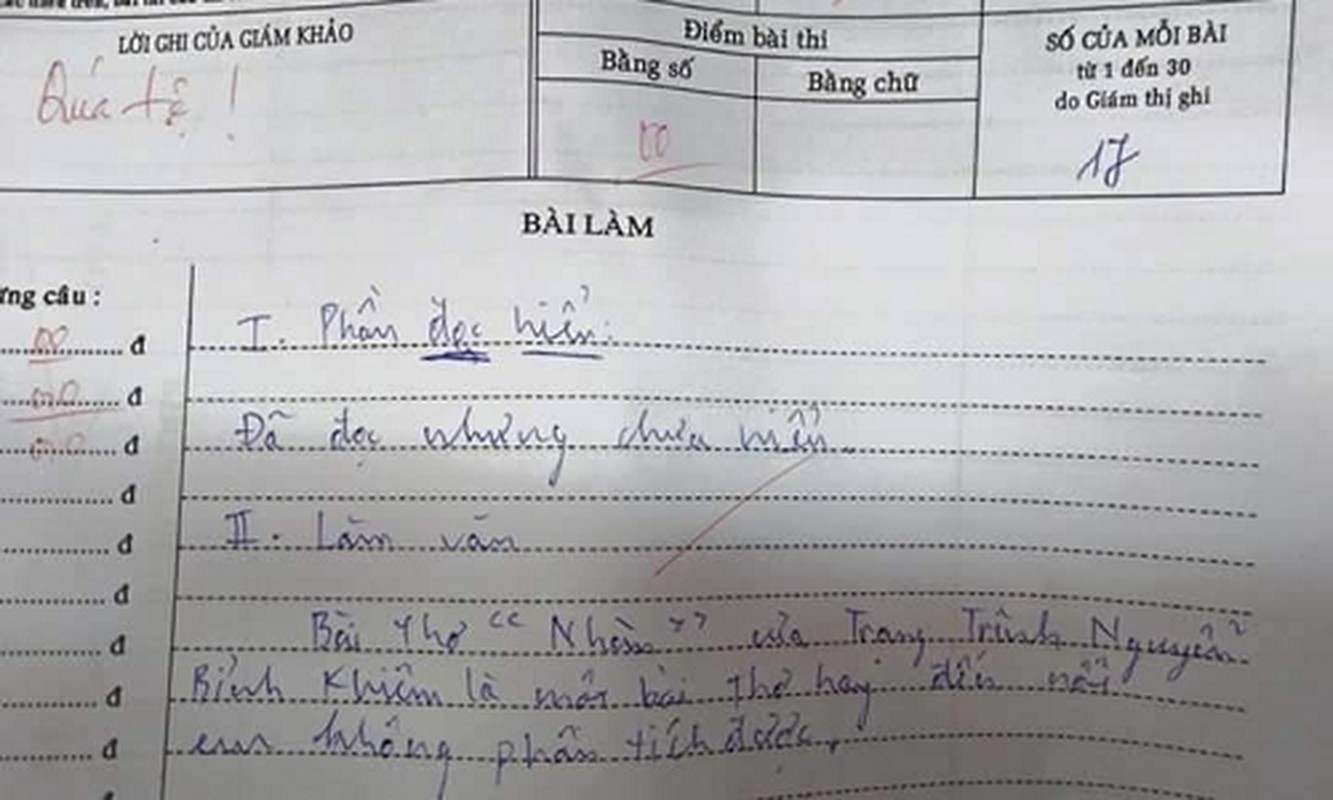 LỜI GHI CỦA GIÁM KHẢO
Quá tệ !
Điểm bài thi
Bằng số
Bằng chữ
00
SỐ CỦA MỖI BÀI
từ 1 đến 30
do Giám thị ghi
17
BÀI LÀM
ừng câu :
00 đ
00 đ
00 đ
đ
đ
đ
đ
đ
đ
I. Phần đọc hiểu:
Đã đọc nhưng chưa hiểu.
II. Làm văn
Bài thơ " Nhàn " của Trạng Trình Nguyễn
Bỉnh Khiêm là một bài thơ hay đến nỗi
em không phân tích được.